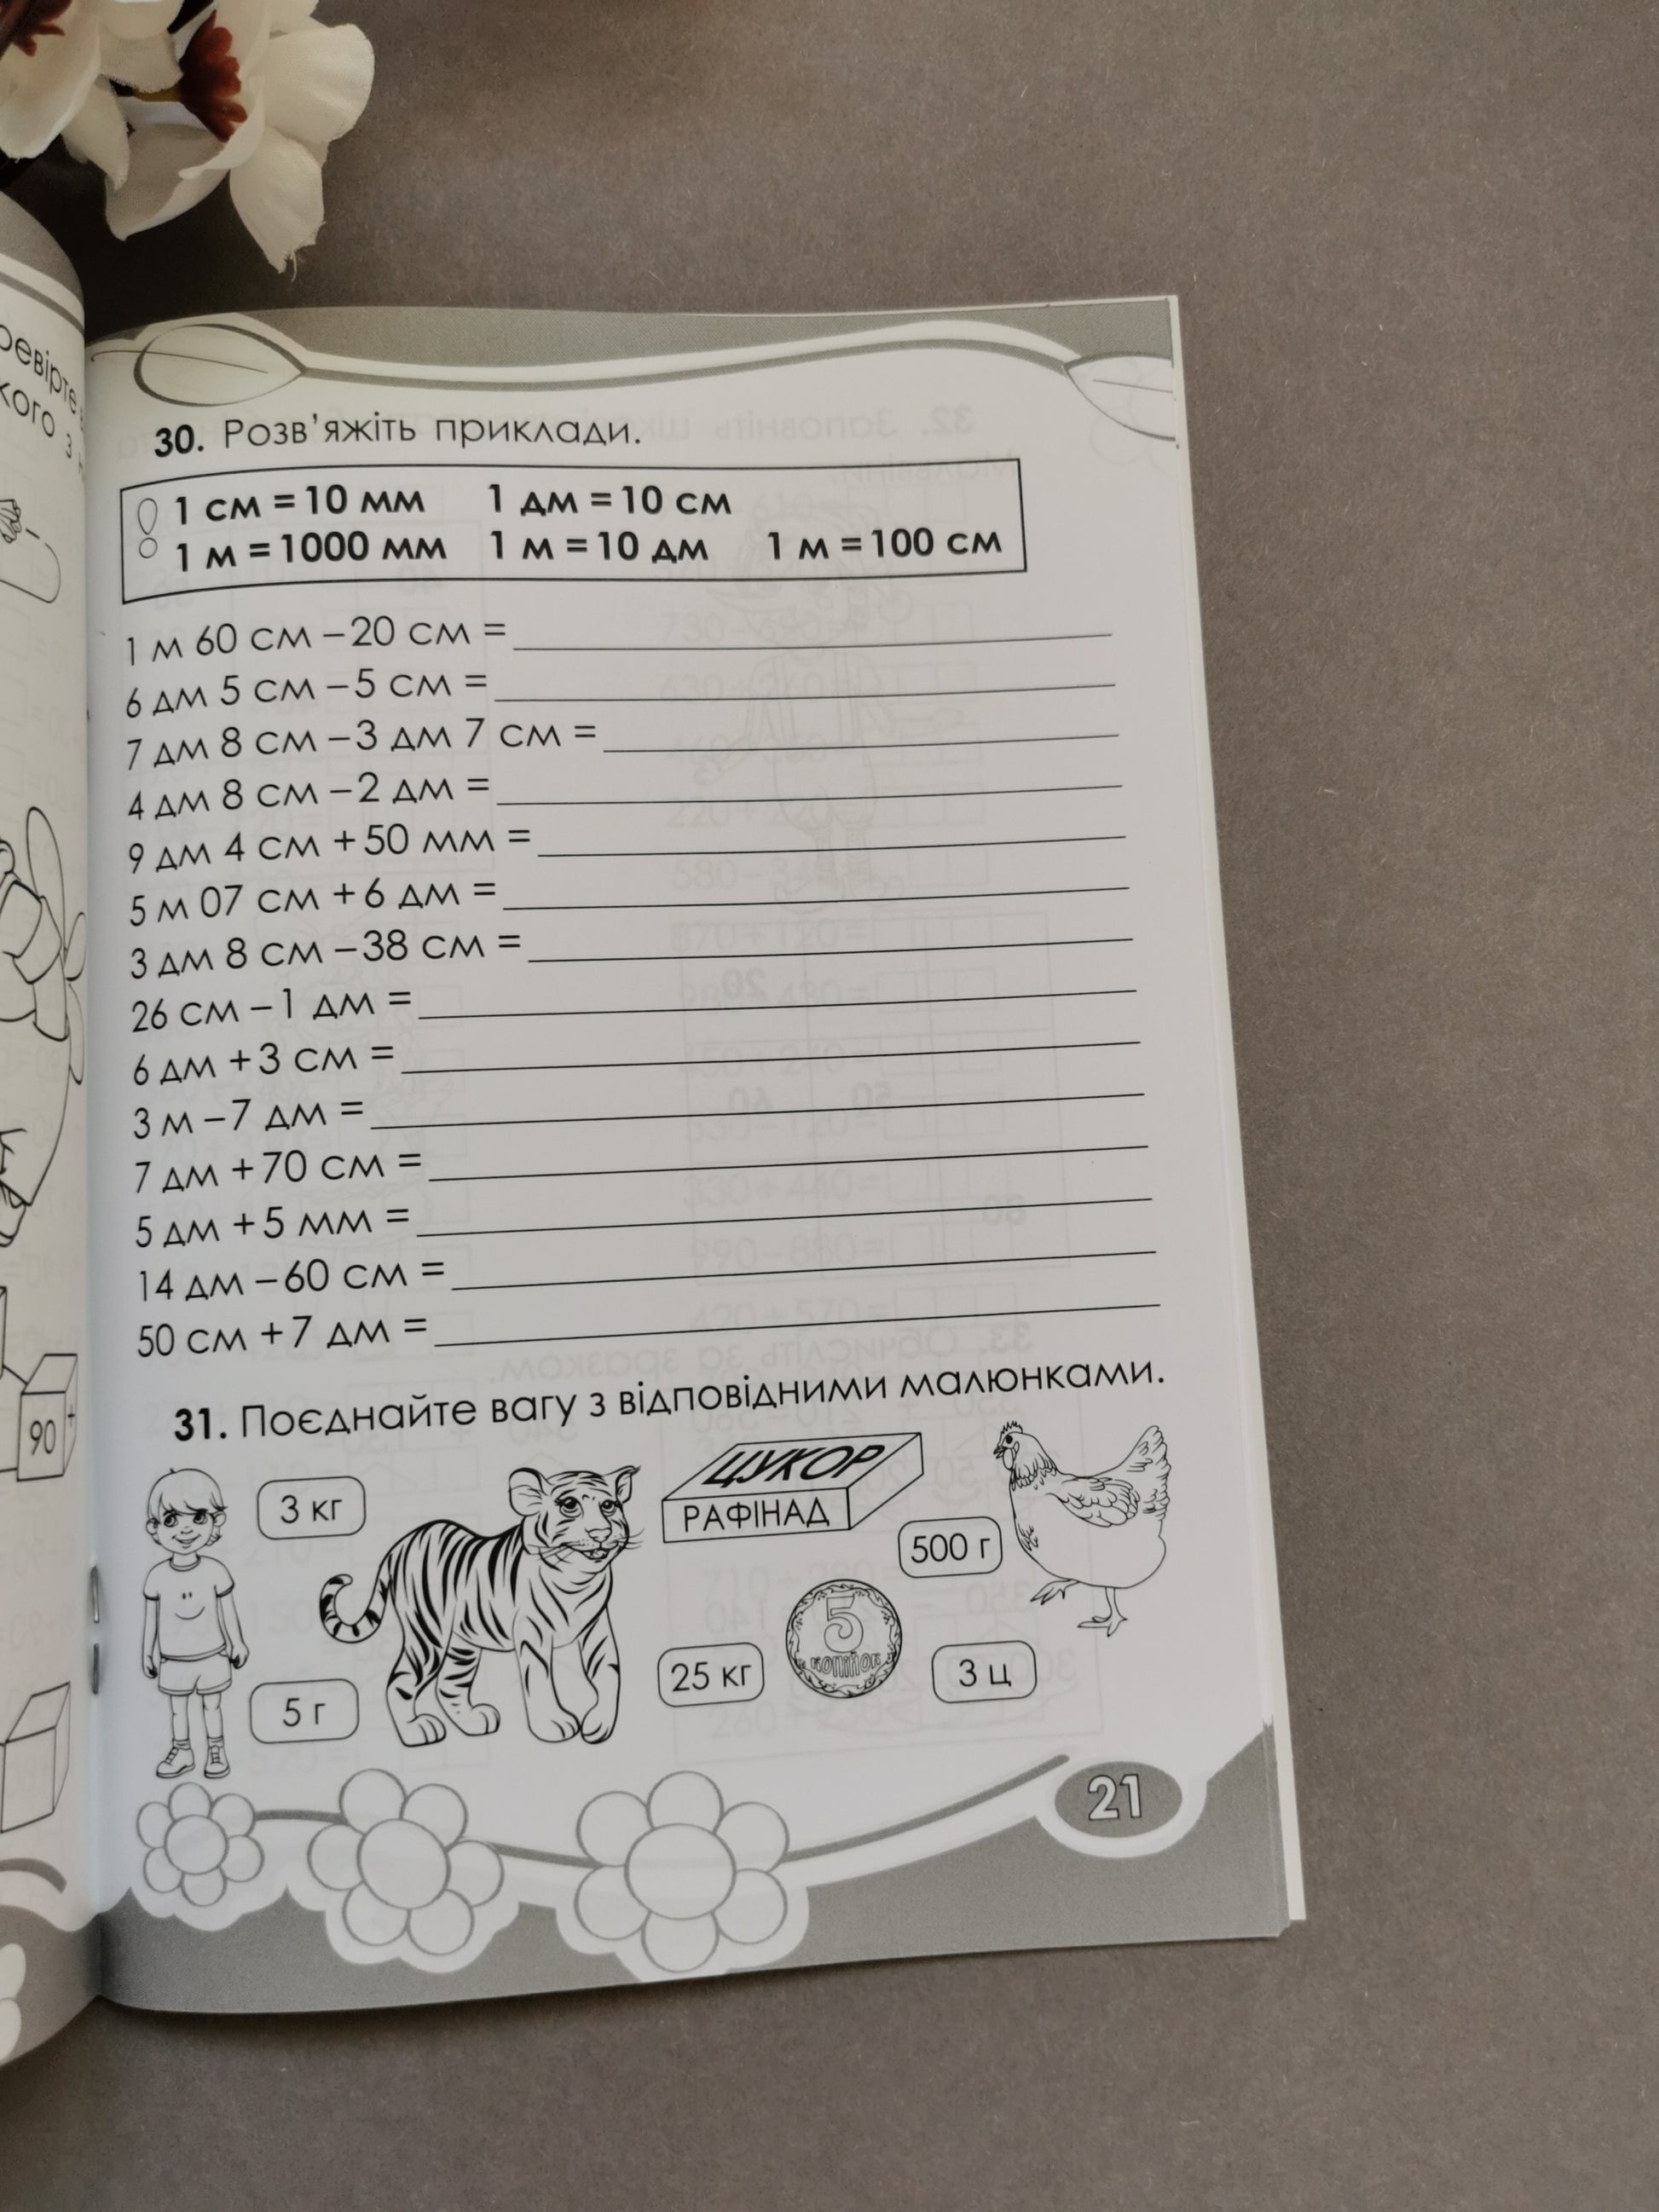 ревірте
кого з
90
30. Розв'яжіть приклади.
1 см = 10 мм 1 дм = 10 см
1 м = 1000 мм 1 м = 10 дм 1 м = 100 см
1 м 60 см – 20 см =
6 дм 5 см – 5 см =
7 дм 8 см – 3 дм 7 см =
4 дм 8 см – 2 дм =
9 дм 4 см + 50 мм =
5 м 07 см + 6 дм =
3 дм 8 см – 38 см =
26 см – 1 дм =
6 дм + 3 см =
3 м – 7 дм =
7 дм + 70 см =
5 дм + 5 мм =
14 дм – 60 см =
50 см + 7 дм =
31. Поєднайте вагу з відповідними малюнками.
3 кг
ЦУКОР
РАФІНАД
500 г
5
копійок
25 кг
3 ц
5 г
21